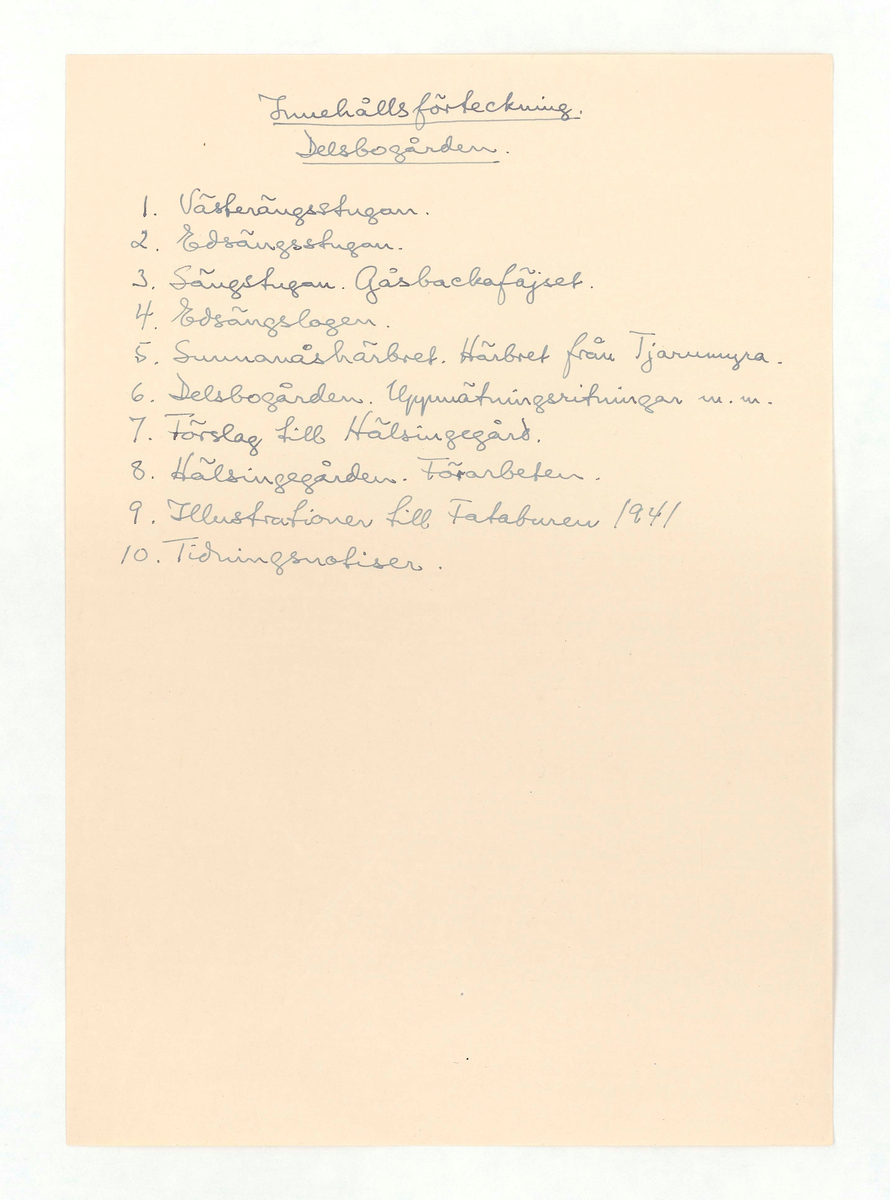 Innehållsförteckning.
Delsbogården.
1. Västerängsstugan.
2. Edsängsstugan.
3. Sängstugan. Gåsbackafäjset.
4. Edsängslogen.
5. Sunnanåshärbret. Härbret från Tjarumyra.
6. Delsbogården. Uppmätningsritningar m.m.
7. Förslag till Hälsingegård.
8. Hälsingegården. Förarbeten.
9. Illustrationer till Fataburen 1941
10. Tidningsnotiser.